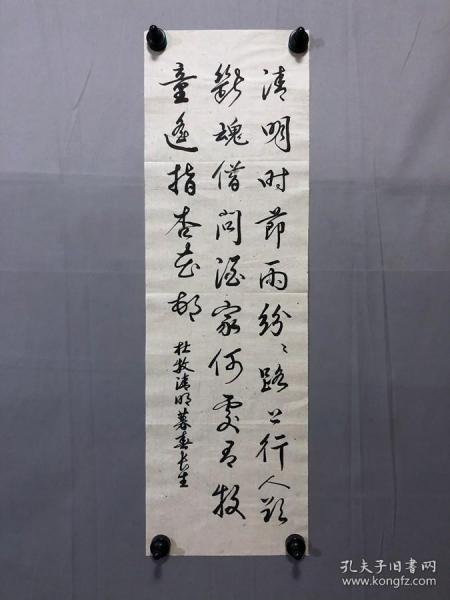 清明时節雨紛〻路上行人欲
斷魂借问酒家何处有牧
童遥指杏花邨
杜牧清明暮春长生
孔夫子旧书网
www.kongfz.com